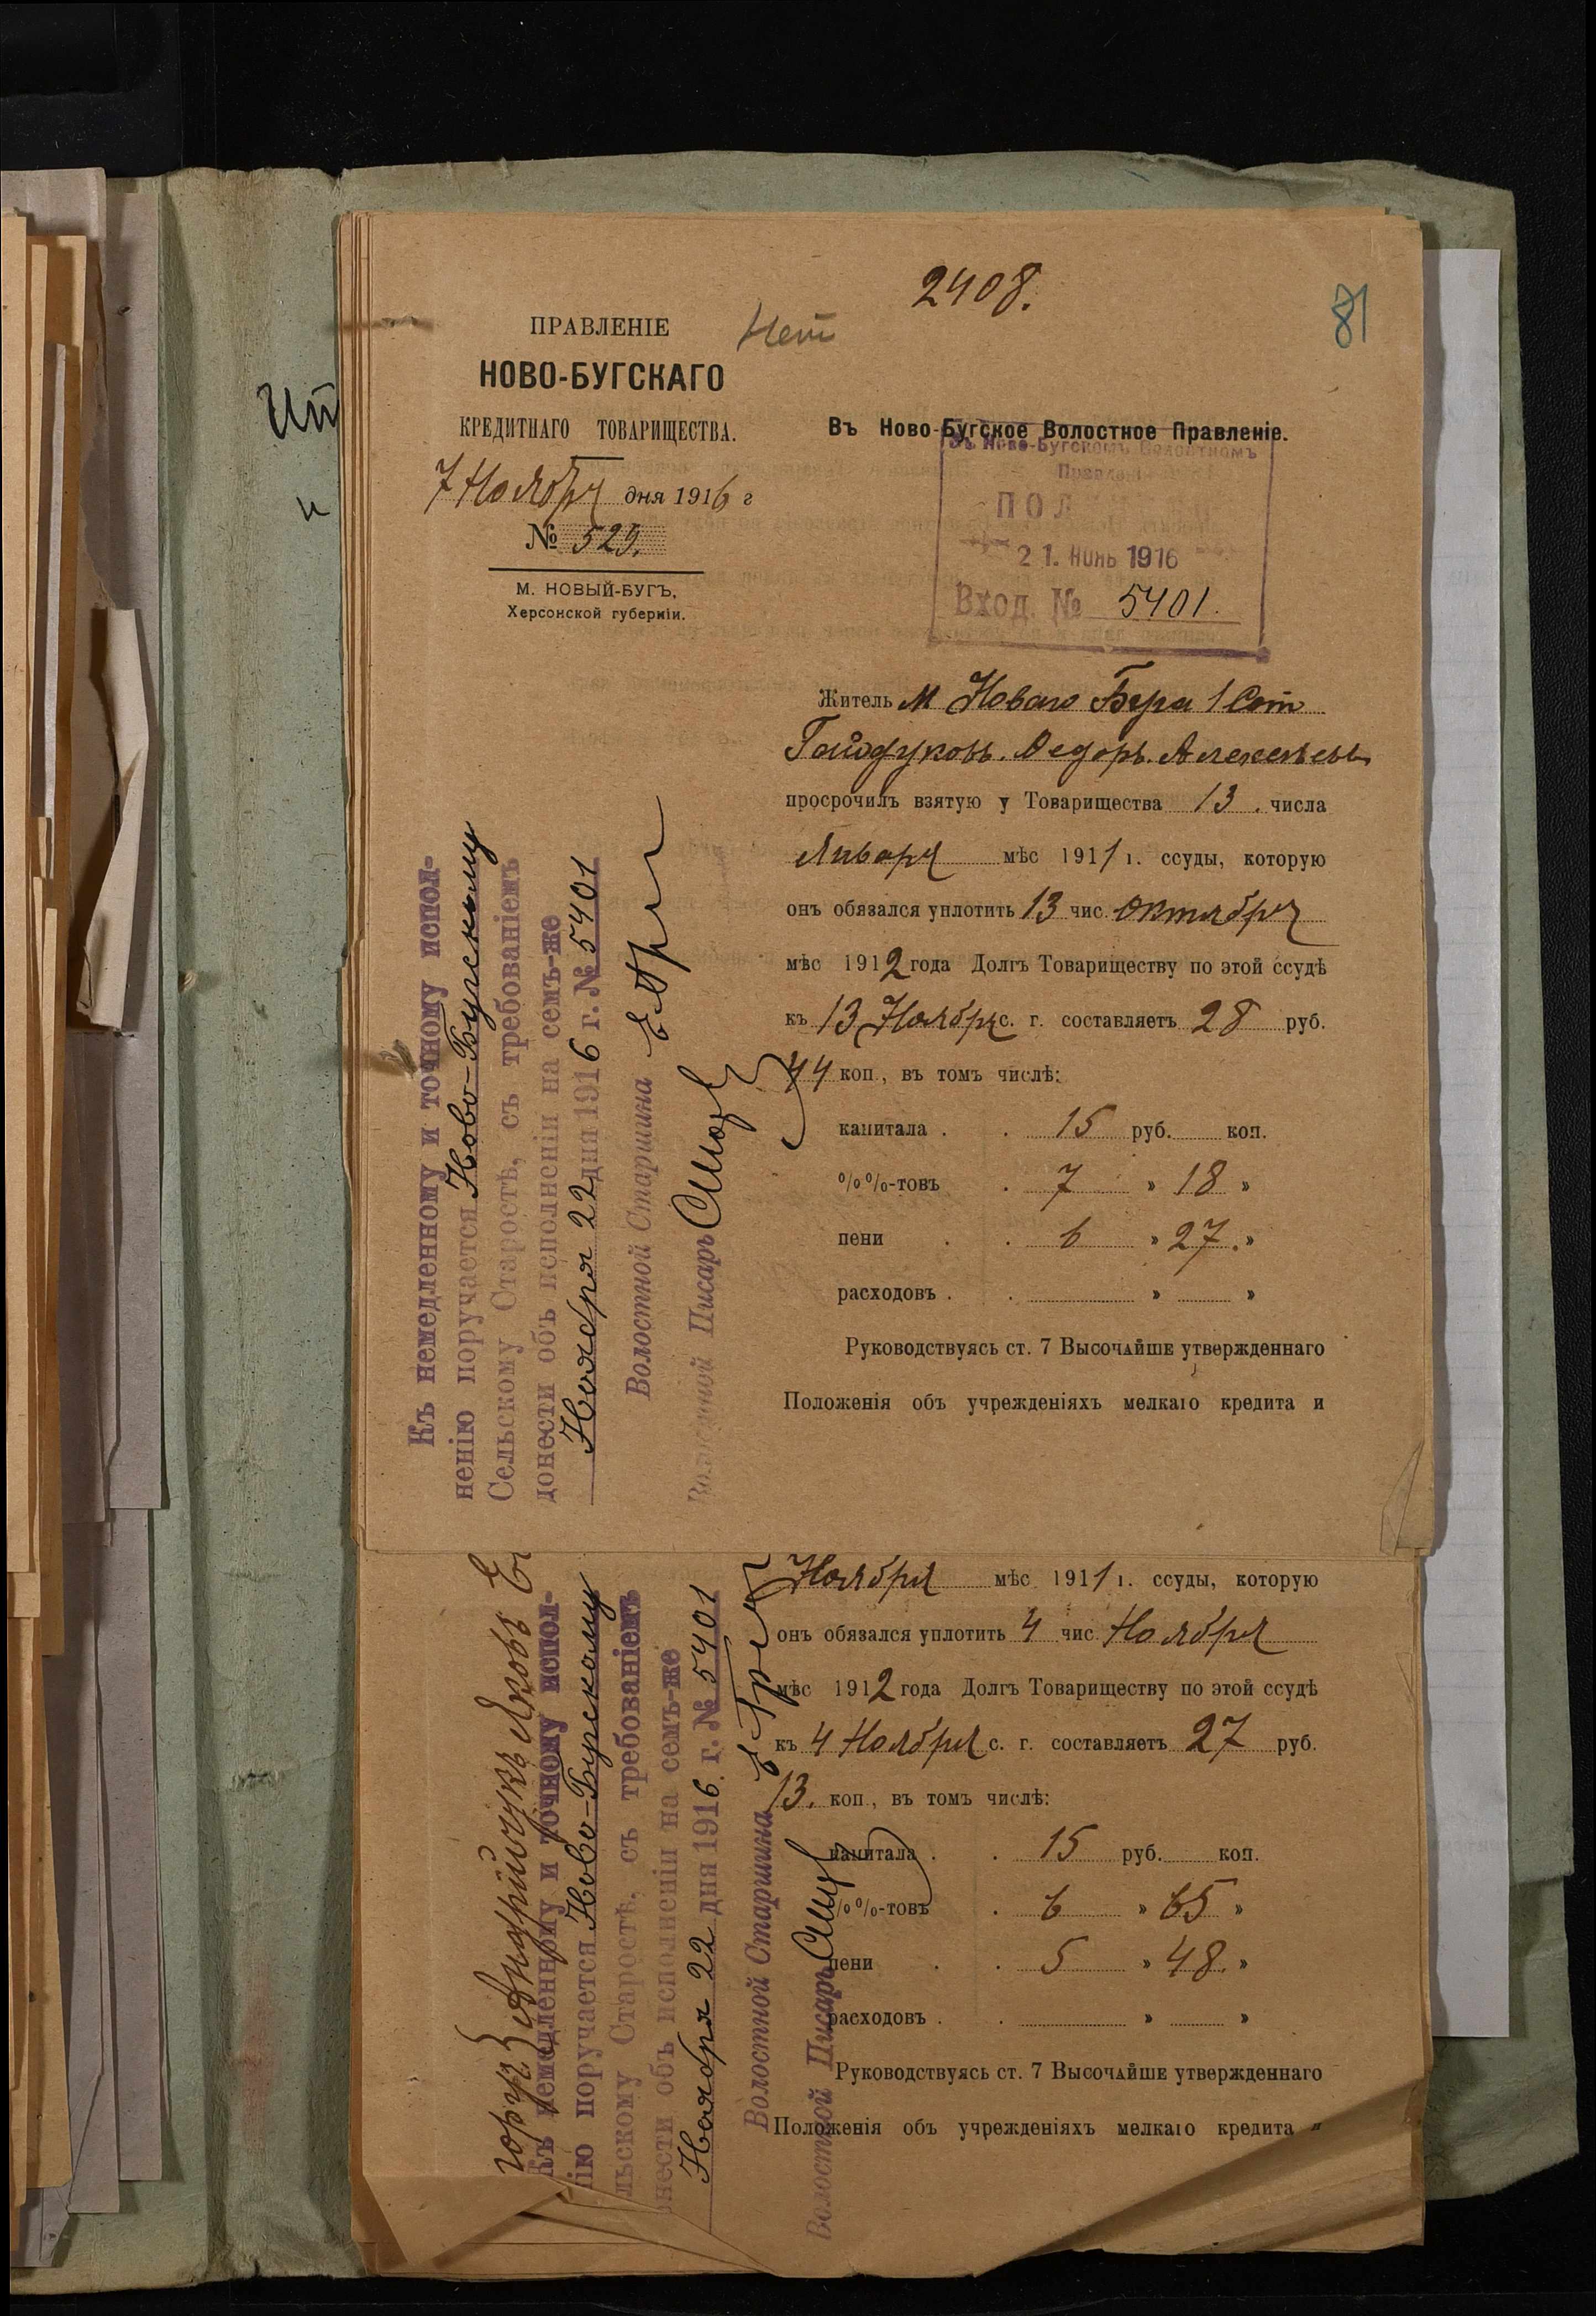 2408.
81
Нет
ПРАВЛЕНІЕ
НОВО-БУГСКАГО
КРЕДИТНАГО ТОВАРИЩЕСТВА.
7 Ноября дня 1916 г
№ 529.
М. НОВЫЙ-БУГЪ,
Херсонской губерніи.
Въ Ново-Бугское Волостное Правленіе.
Въ Ново-Бугскомъ Волостномъ
Правленіи
ПОЛ
21. 1916
Вход. № 5401.
Житель М Новаго Буга 1 Сот
Гайдуковъ. Федоръ. Алексѣевъ
просрочилъ взятую у Товарищества 13. числа
Января мѣс 1911 г. ссуды, которую
онъ обязался уплотить 13 чис. Октября
мѣс 1912 года Долгъ Товариществу по этой ссудѣ
къ 13 Ноября с. г. составляетъ 28 руб.
44 коп., въ томъ числѣ:
капитала . . 15 руб. коп.
%%-товъ . 7 » 18 »
пени . . 6 » 27. »
расходовъ . . » »
Руководствуясь ст. 7 Высочайше утвержденнаго
Положенія объ учрежденіяхъ мелкаго кредита и
Къ немедленному и точному испол-
ненію поручается Ново-Бугскому
Сельскому Старостѣ, съ требованіемъ
донести объ исполненіи на семъ-же
Ноября 22 дня 1916 г. № 5401
Волостной Старшина
Волостной Писарь
Ноября мѣс 1911 г. ссуды, которую
онъ обязался уплотить 4 чис. Ноября
мѣс 1912 года Долгъ Товариществу по этой ссудѣ
къ 4 Ноября с. г. составляетъ 27 руб.
13. коп., въ томъ числѣ:
капитала . . 15 руб. коп.
%%-товъ . 6 » 65 »
пени . . 5 » 48. »
расходовъ . . » »
Руководствуясь ст. 7 Высочайше утвержденнаго
Положенія объ учрежденіяхъ мелкаго кредита и
Андрійчукъ Яковъ
Къ немедленному и точному испол-
нію поручается Ново-Бугскому
льскому Старостѣ, съ требованіемъ
нести объ исполненіи на семъ-же
Ноября 22 дня 1916 г. № 5401
Волостной Старшина
Волостной Писарь